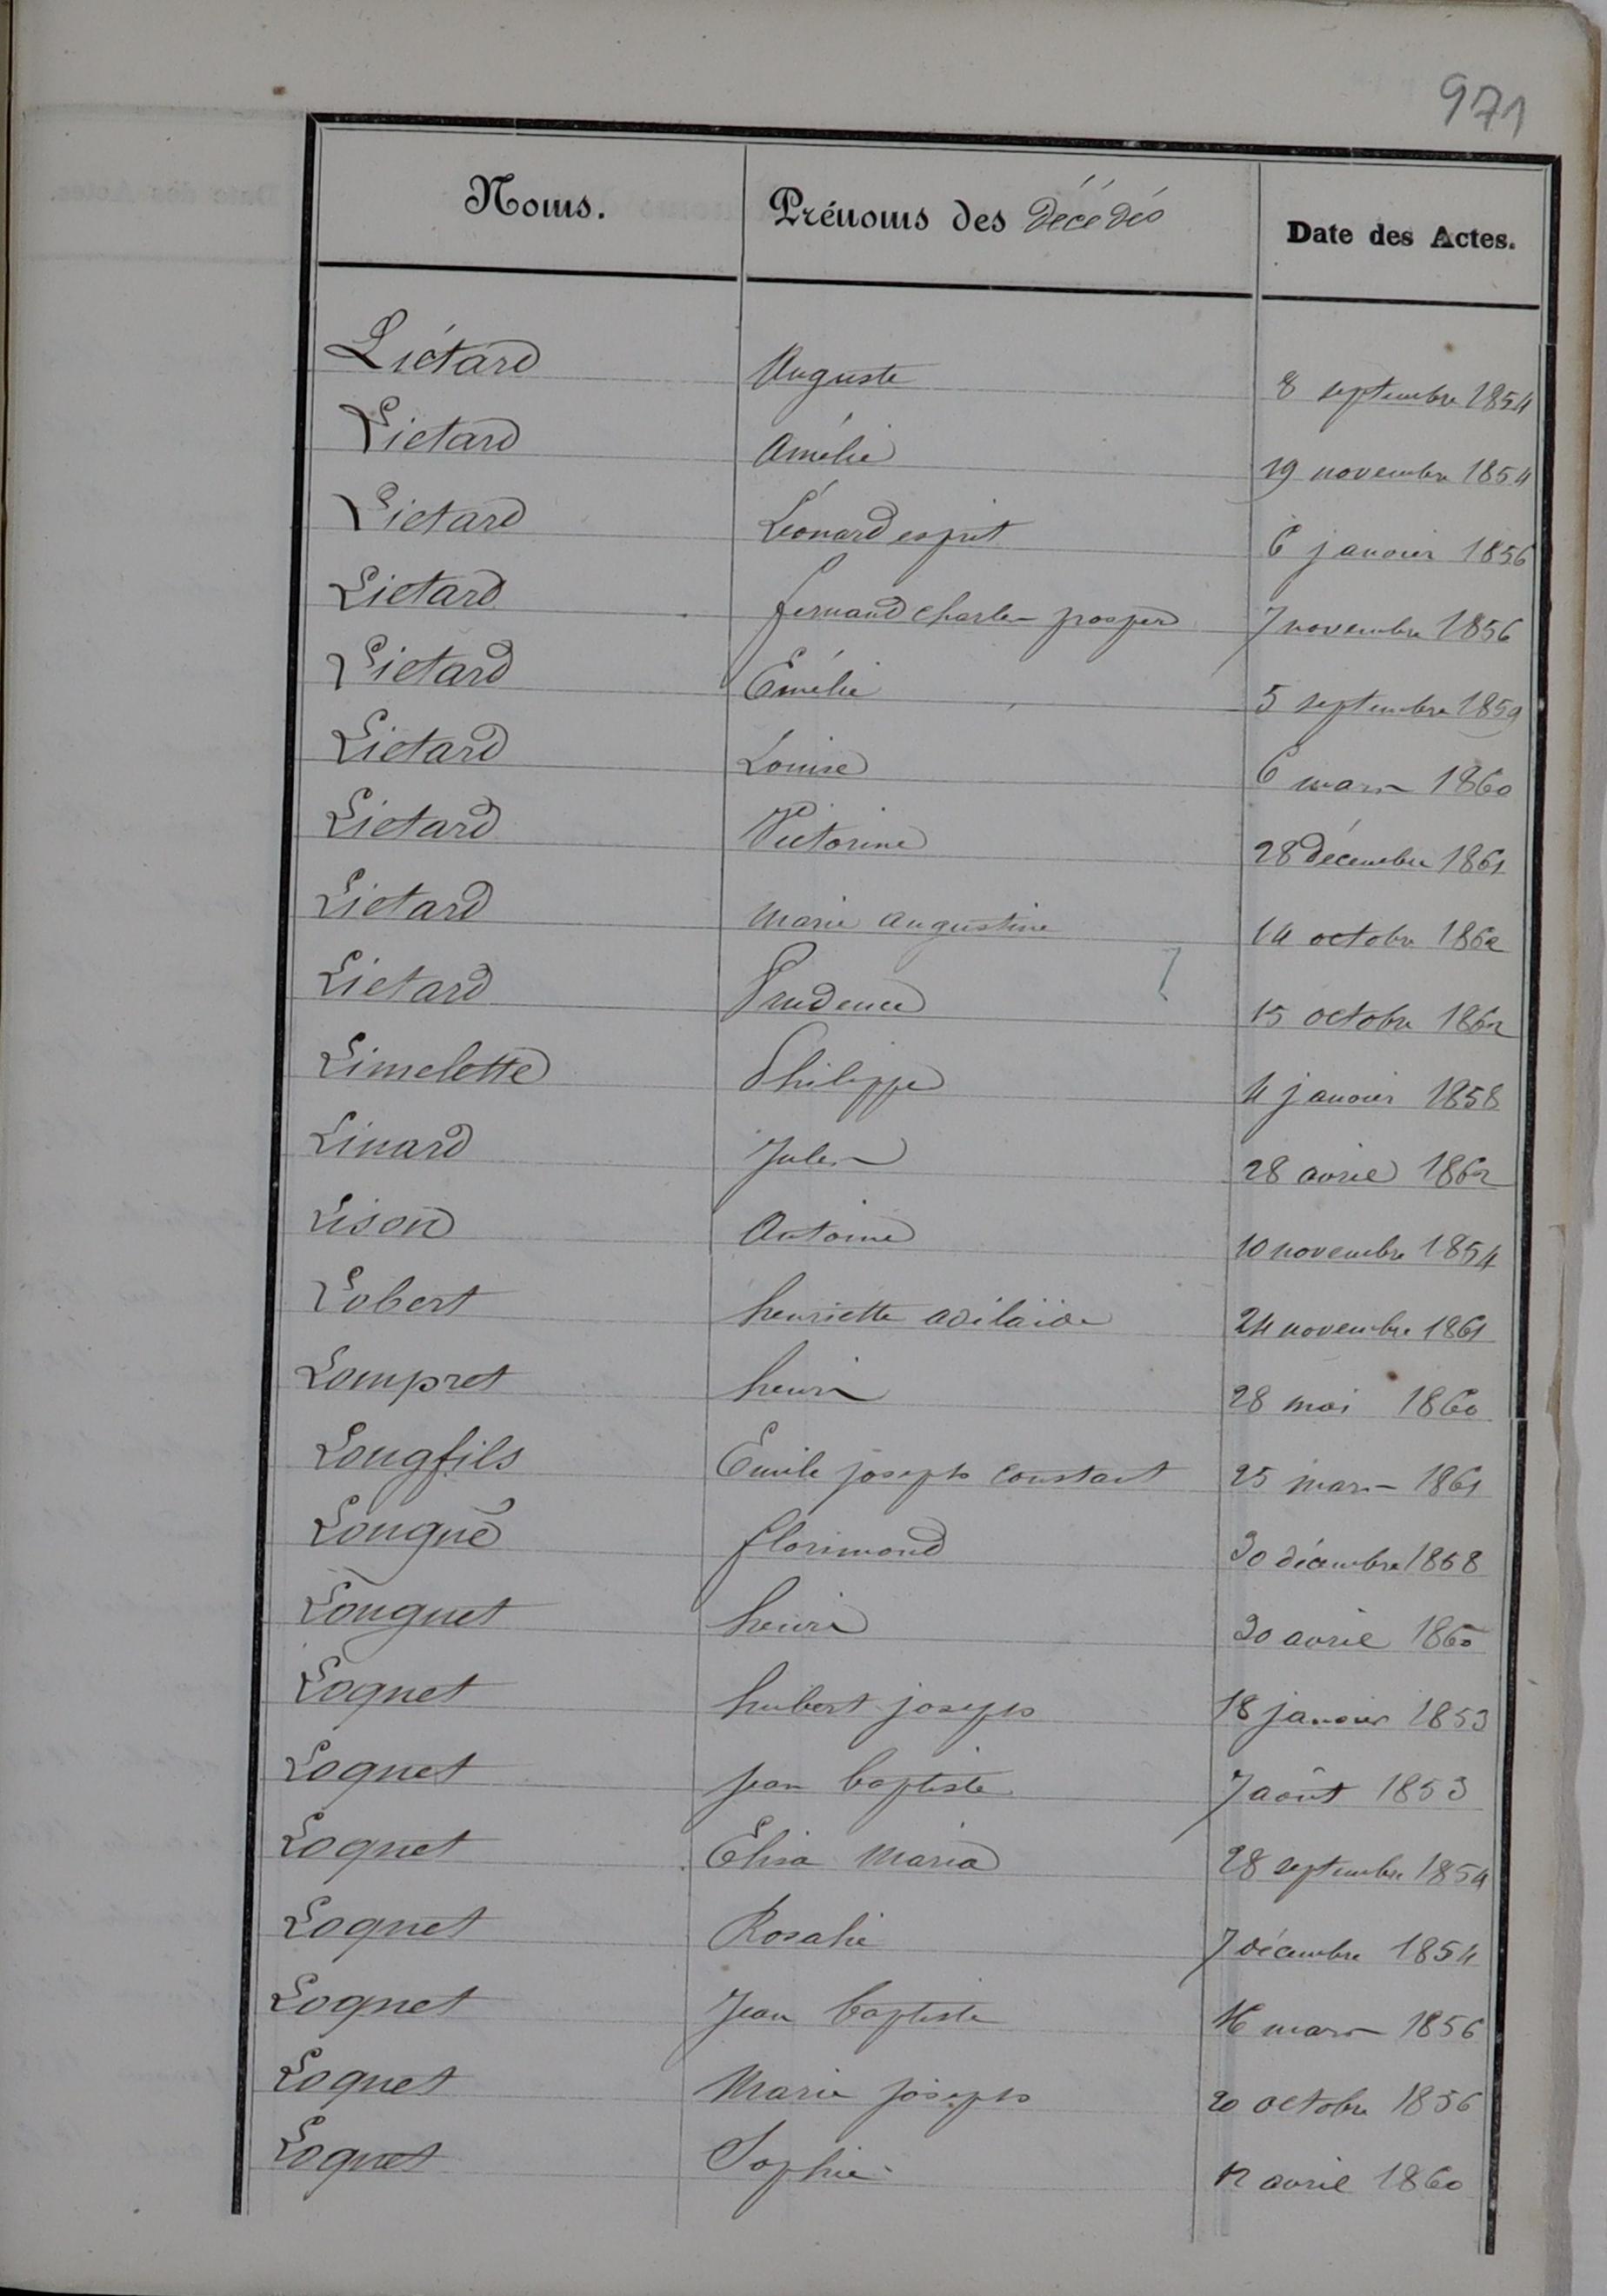 971
Noms. Prénoms des décédés Date des Actes.
Liétard Auguste 8 septembre 1854
Lietard Amélie 19 novembre 1854
Lietard Léonard esprit 6 janvier 1856
Lietard fernand charles prosper 7 novembre 1856
Lietard Émélie 5 septembre 1859
Lietard Louise 6 mars 1860
Lietard Victorine 28 décembre 1861
Lietard Marie augustine 14 octobre 1862
Lietard Prudence 15 octobre 1862
Limelette Philippe 4 janvier 1858
Linard Jules 28 avril 1862
Lison Antoine 10 novembre 1854
Lobert henriette adélaïde 24 novembre 1861
Lompret henri 28 mai 1860
Longfils Emile joseph constant 25 mars 1861
Longué florimond 30 décembre 1858
Longuet henri 30 avril 1860
Loquet hubert joseph 18 janvier 1853
Loquet jean baptiste 7 août 1853
Loquet Elisa Maria 28 septembre 1854
Loquet Rosalie 7 décembre 1854
Loquet Jean baptiste 16 mars 1856
Loquet Marie joseph 20 octobre 1856
Loquet Sophie 12 avril 1860